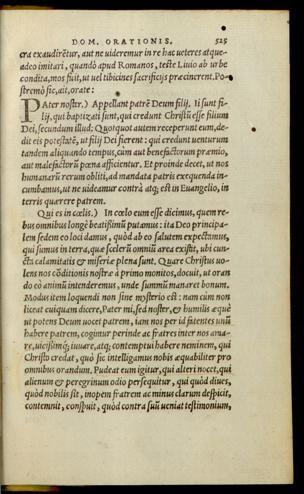 DOM. ORATIONIS. 525
cra exaudirētur, aut ne videremur in re hac ueteres atque-
adeo imitari, quando apud Romanos, teste Liuio ab urbe
condita, mos fuit, ut uel tibicines sacrificijs præcinerent. Po-
stremò sic, ait, orate:
PAter nostr.) Appellant patrē Deum filij. Ii sunt fi-
lij, qui baptizati sunt, qui credunt Christū esse filium
Dei, secundum illud: Quotquot autem receperunt eum, de-
dit eis potestatē, ut filij Dei fierent: qui credunt uenturum
tandem aliquando tempus, cùm aut benefactorum præmio,
aut malefactorū pœna afficientur. Et proinde decet, ut nos
humanarū rerum obliti, ad mandata patris exequenda in-
cumbamus, ut ne uideamur contrà atq; est in Euangelio, in
terris quærere patrem.
Qui es in cœlis.) In cœlo eum esse dicimus, quem re-
bus omnibus longè beatißimū putamus: ita Deo principa-
lem sedem eo loci damus, quòd ab eo salutem expectamus,
qui sumus in terra, quæ scelerū omniū area existit, ubi cun-
cta calamitatis & miseriæ plena sunt. Quare Christus uo-
lens nos cōditionis nostræ à primo monitos, docuit, ut oran
do eò animū intenderemus, unde summū manaret bonum.
Modus item loquendi non sine mysterio est: nam cùm non
liceat cuiquam dicere, Pater mi, sed noster, & humilis æquè
ut potens Deum uocet patrem, iam nos per id fatentes unū
habere patrem, cogimur perinde ac fratres inter nos ama-
re, uicißimq; iuuare, atq; contemptui habere neminem, qui
Christo credat, quò sic intelligamus nobis æquabiliter pro
omnibus orandum. Pudeat eum igitur, qui alteri nocet, qui
alienum & peregrinum odio persequitur, qui quòd diues,
quòd nobilis sit, inopem fratrem ac minus clarum despicit,
contemnit, conspuit, quòd contra suū ueniat testimonium,